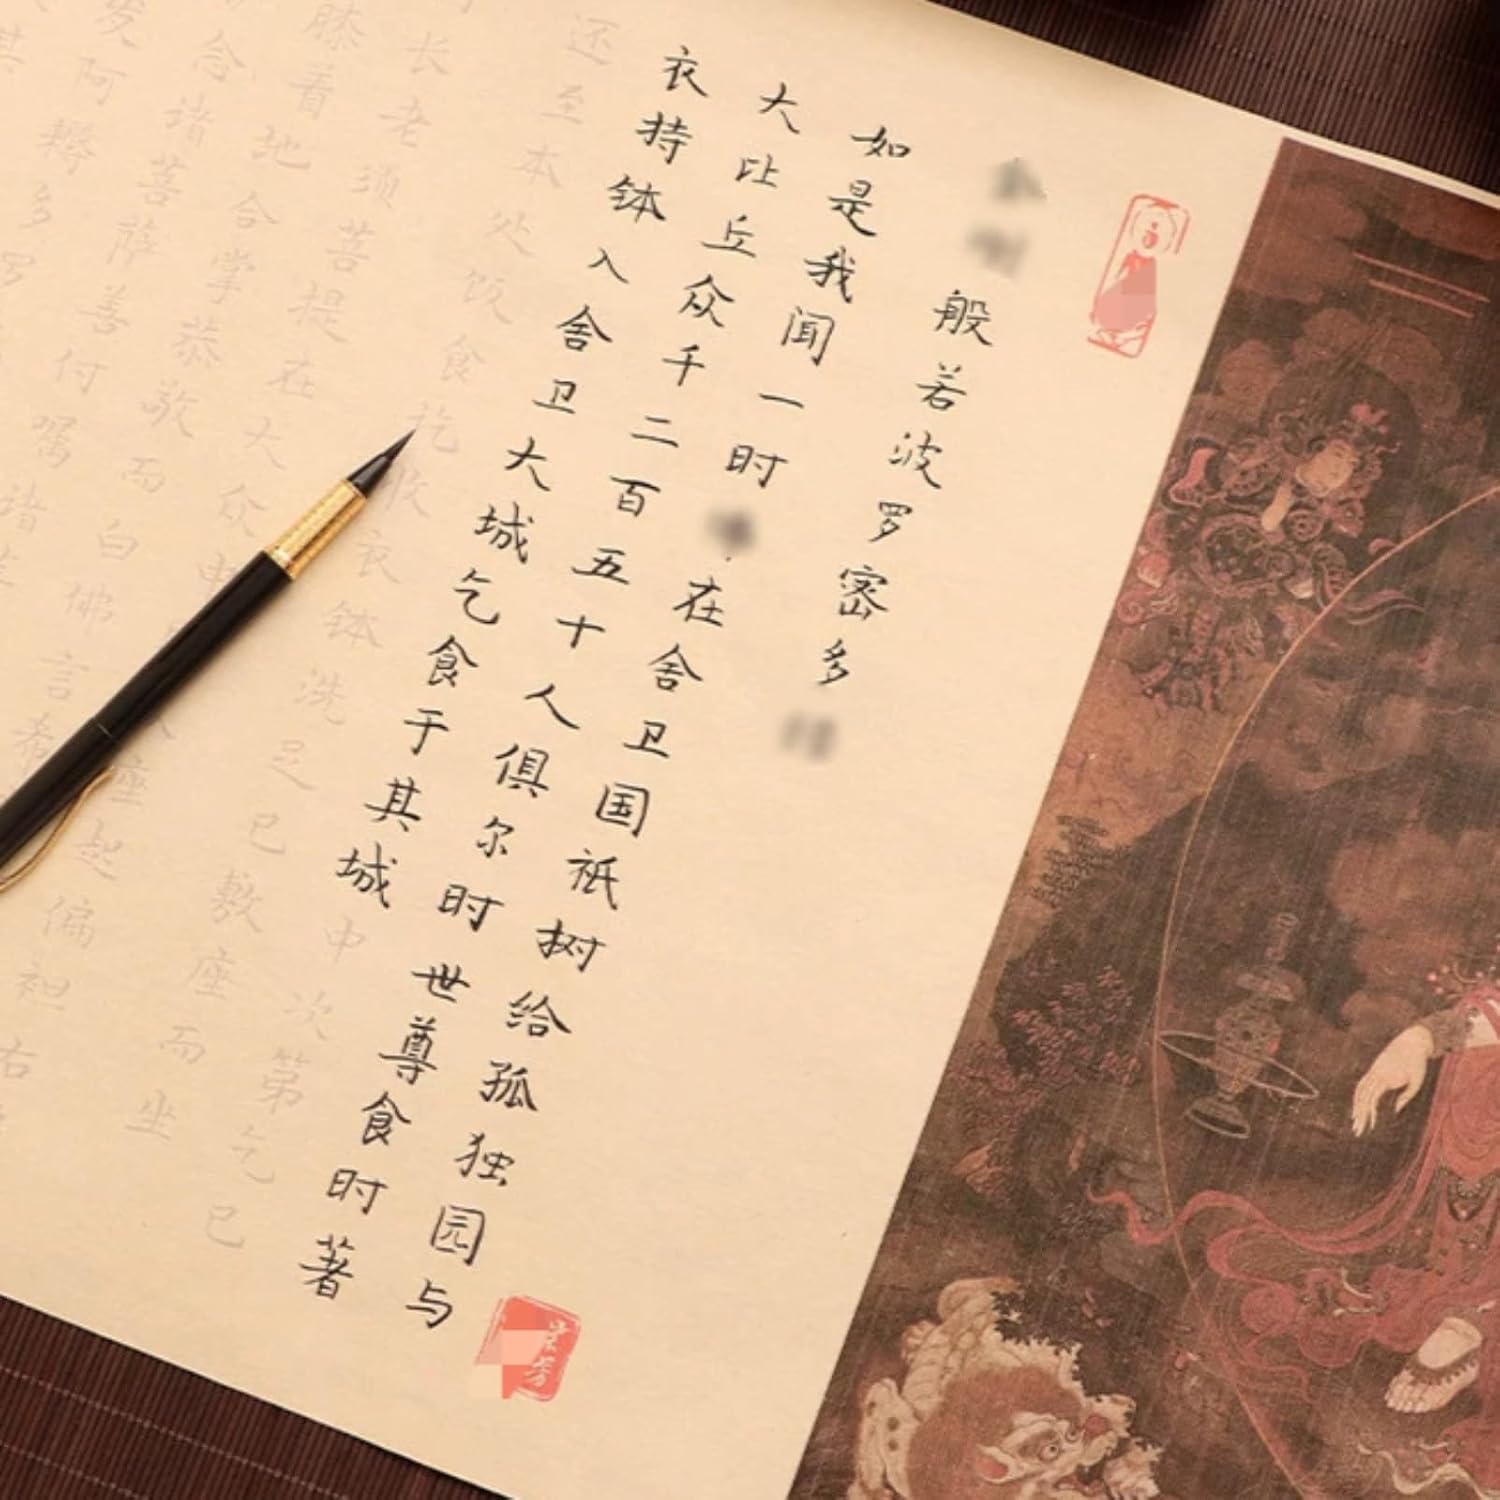 般若波罗密多
如是我闻一时在舍卫国祇树给孤独园与
大比丘众千二百五十人俱尔时世尊食时著
衣持钵入舍卫大城乞食于其城中次第乞已
还至本处饭食讫收衣钵洗足已敷座而坐
长老须菩提在大众中座起偏袒右
膝着地合掌恭敬而白佛言希
念诸菩萨善付嘱诸
阿耨多罗